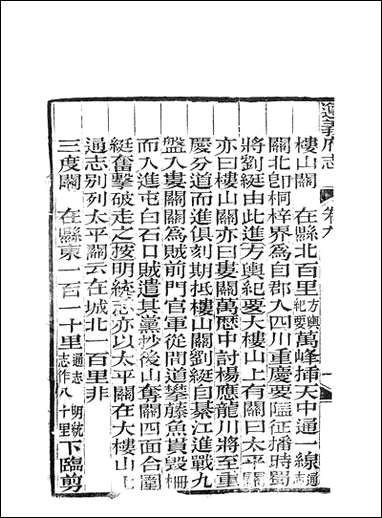 遵義府志　卷九
樓山關　在縣北百里方輿紀要萬峰插天中通一線通志
關北卽桐梓界爲自郡入四川重慶要隘征播時蜀
將劉綎由此進方輿紀要大樓山上有關曰太平關
亦曰樓山關亦曰婁關萬歷中討楊應龍川將至重
慶分道而進俱刻期抵樓山關劉綎自綦江進戰九
盤入婁關關爲賊前門官軍從間道攀藤魚貫毀柵
而入進屯白石口賊遣其黨抄後山奪關四面合圍
綎奮擊破走之按明統志亦以太平關在大樓山上
通志別列太平關云在城北一百里非
三度關　在縣東一百一十里通志明統志作八十里下臨剪